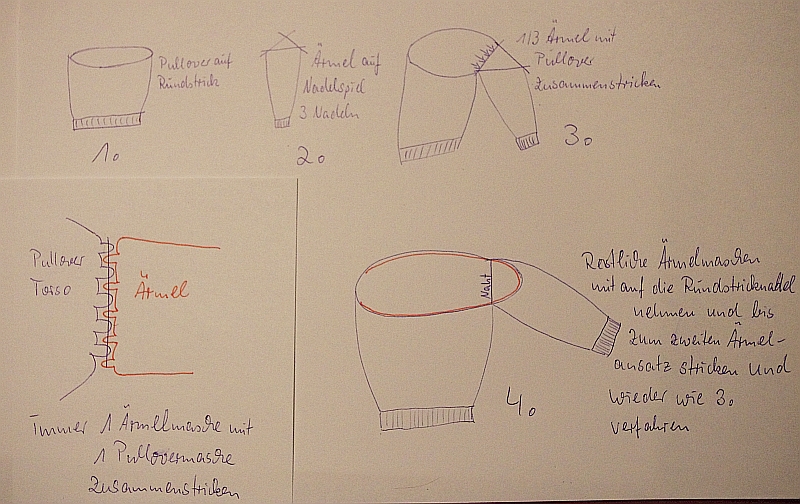 Pullover auf
Rundstrick
1.
Ärmel auf
Nadelspiel
3 Nadeln
2.
1/3 Ärmel mit
Pullover
zusammenstricken
3.
Pullover
Torso
Ärmel
Immer 1 Ärmelmasche mit
1 Pullovermasche
zusammenstricken
Naht
4.
Restliche Ärmelmaschen
mit auf die Rundstricknadel
nehmen und bis
zum zweiten Ärmel-
ansatz stricken und
wieder wie 3.
verfahren